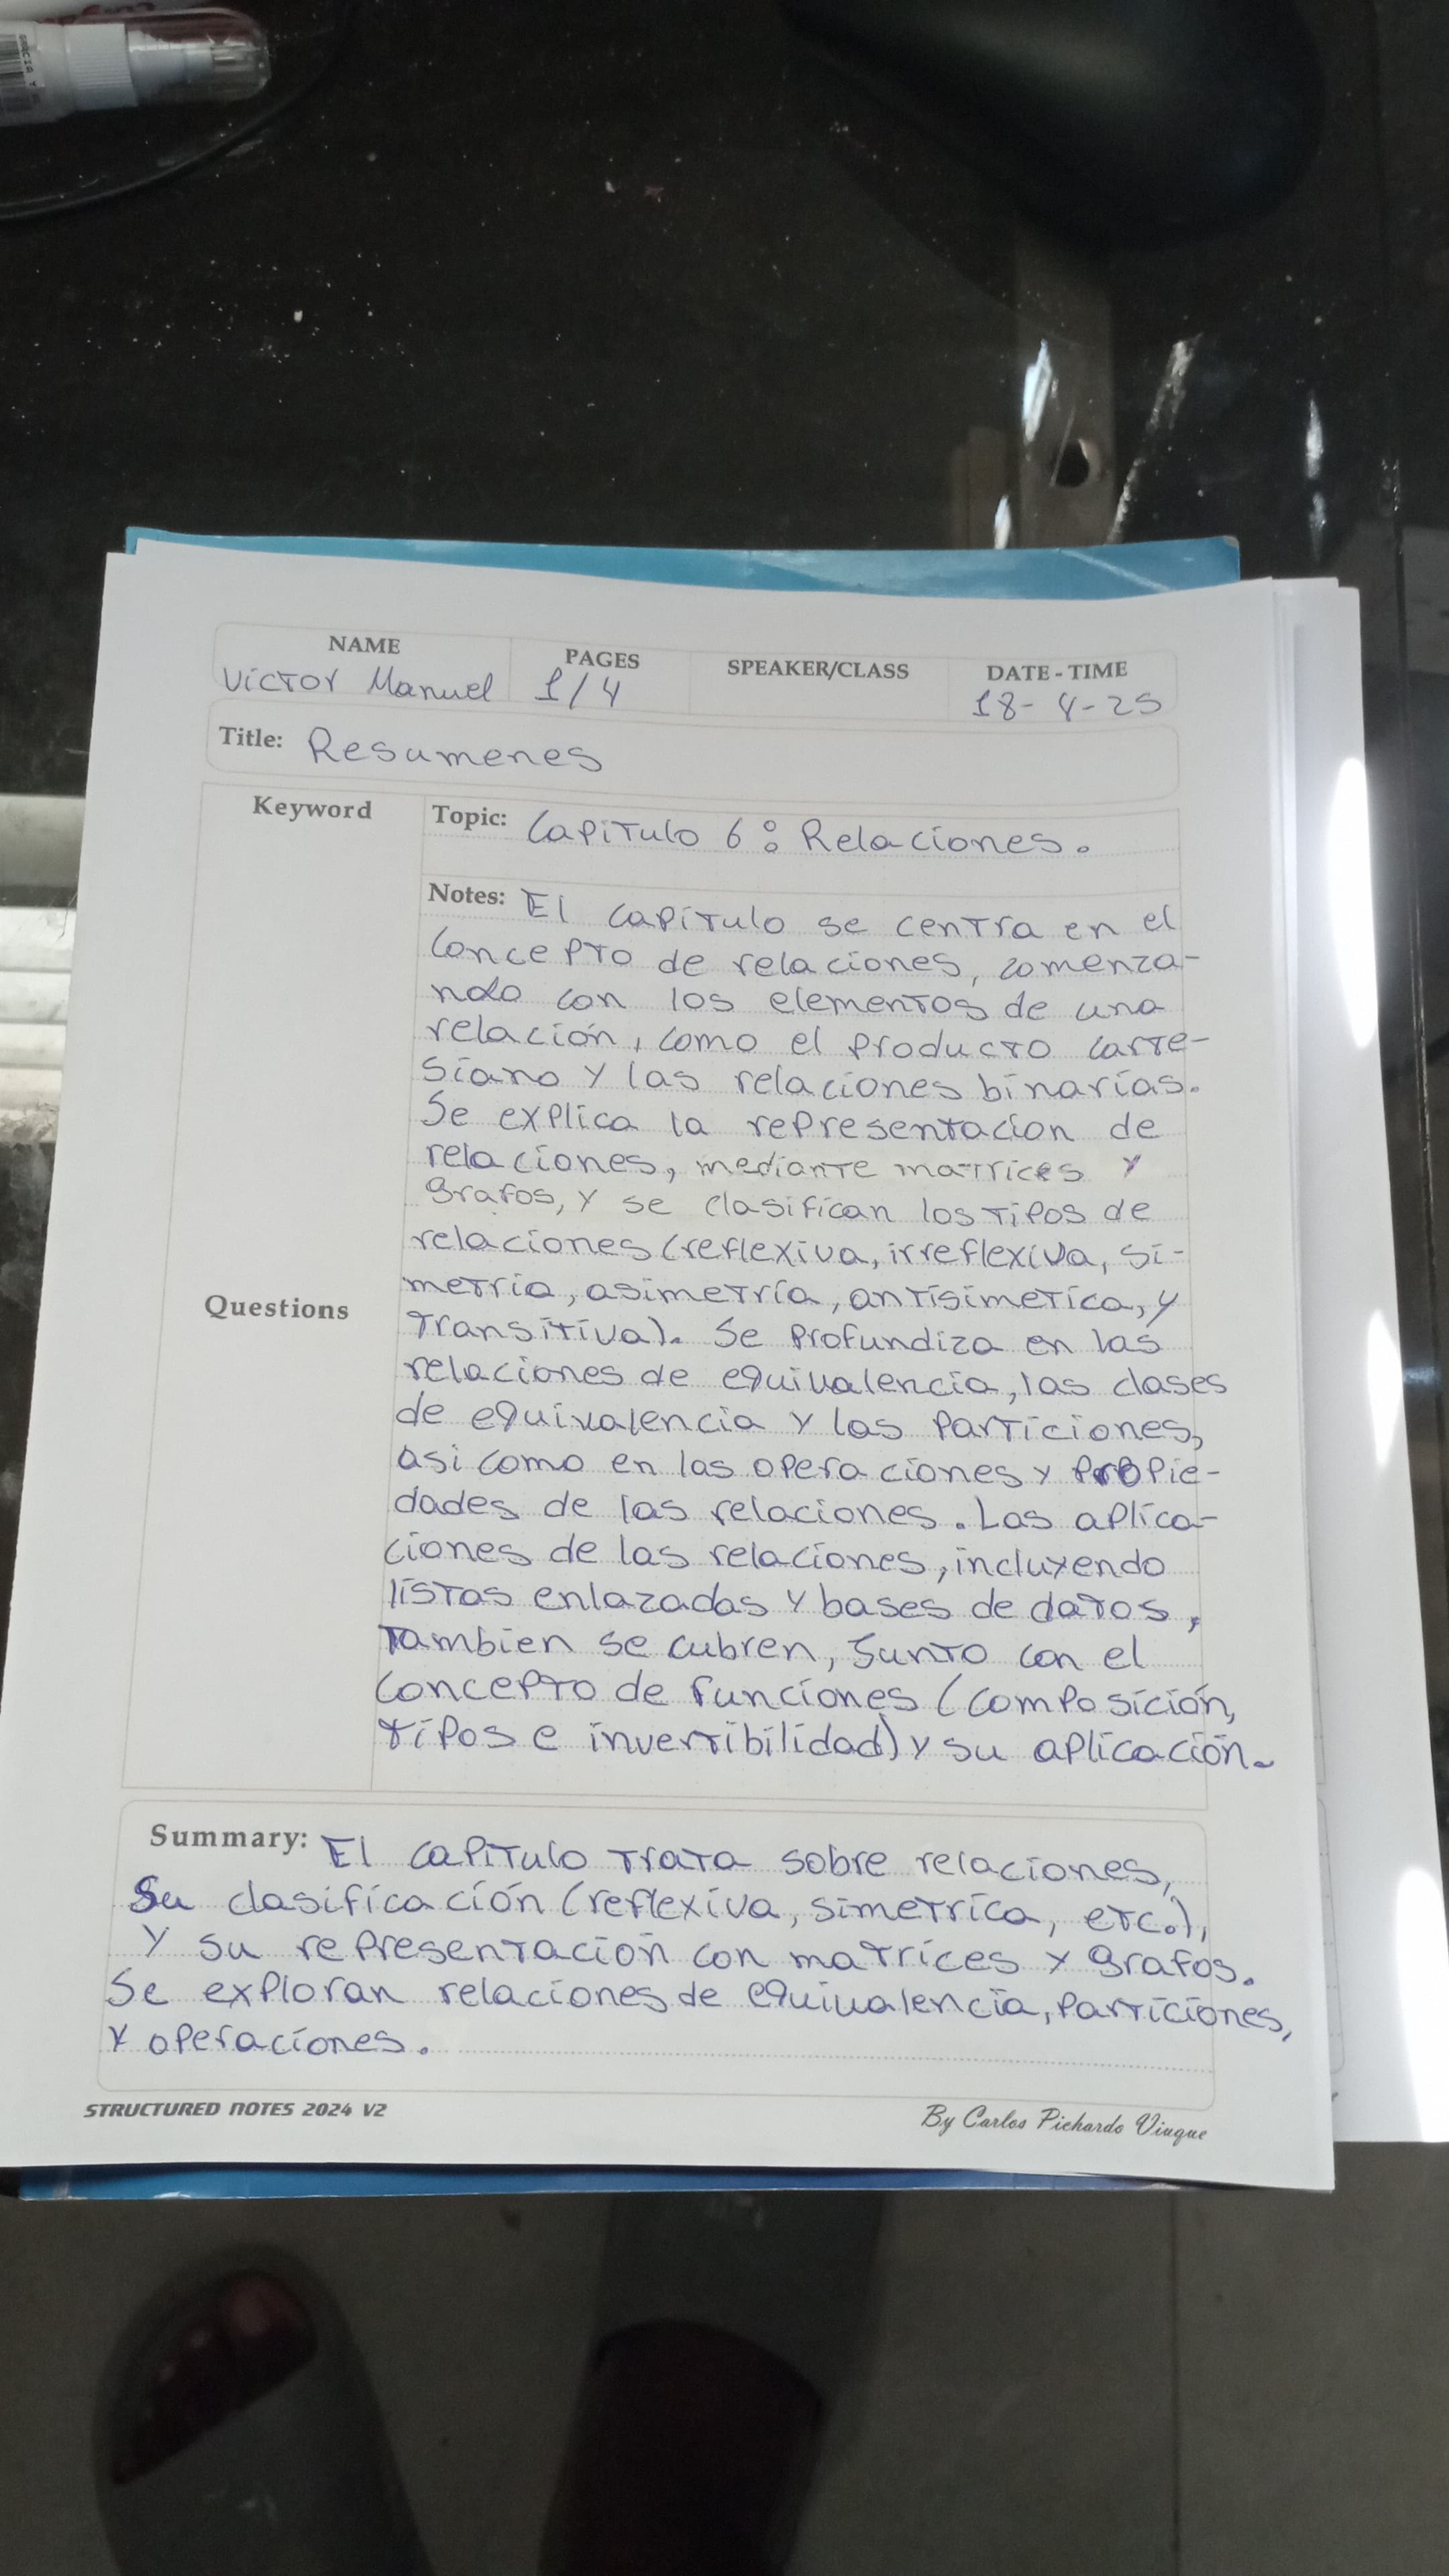 NAME PAGES SPEAKER/CLASS DATE - TIME
Victor Manuel 1/4 18-4-25
Title: Resumenes
Keyword
Topic: Capitulo 6: Relaciones.
Notes: El capitulo se centra en el
concepto de relaciones, comenza-
ndo con los elementos de una
relación, como el producto carte-
siano y las relaciones binarias.
Se explica la representacion de
relaciones, mediante matrices y
grafos, y se clasifican los tipos de
relaciones (reflexiva, irreflexiva, si-
metria, asimetría, antisimetica, y
Transitiva). Se profundiza en las
Questions
relaciones de equivalencia, las clases
de equivalencia y las particiones,
asi como en las operaciones y propie-
dades de las relaciones. Las aplica-
ciones de las relaciones, incluyendo
listas enlazadas y bases de datos,
tambien se cubren, junto con el
concepto de funciones (composición,
tipos e invertibilidad) y su aplicación.
Summary: El capitulo trata sobre relaciones,
Su clasificación (reflexiva, simetrica, etc.),
y su representación con matrices y grafos.
Se exploran relaciones de equivalencia, particiones,
y operaciones.
STRUCTURED NOTES 2024 V2
By Carlos Pichardo Viuque